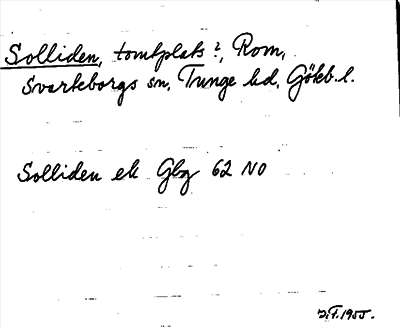 Solliden, tomtplats?, Rom,
Svarteborgs sn, Tunge hd, Göteb. l.
Solliden ek Gbg 62 NO
1955.